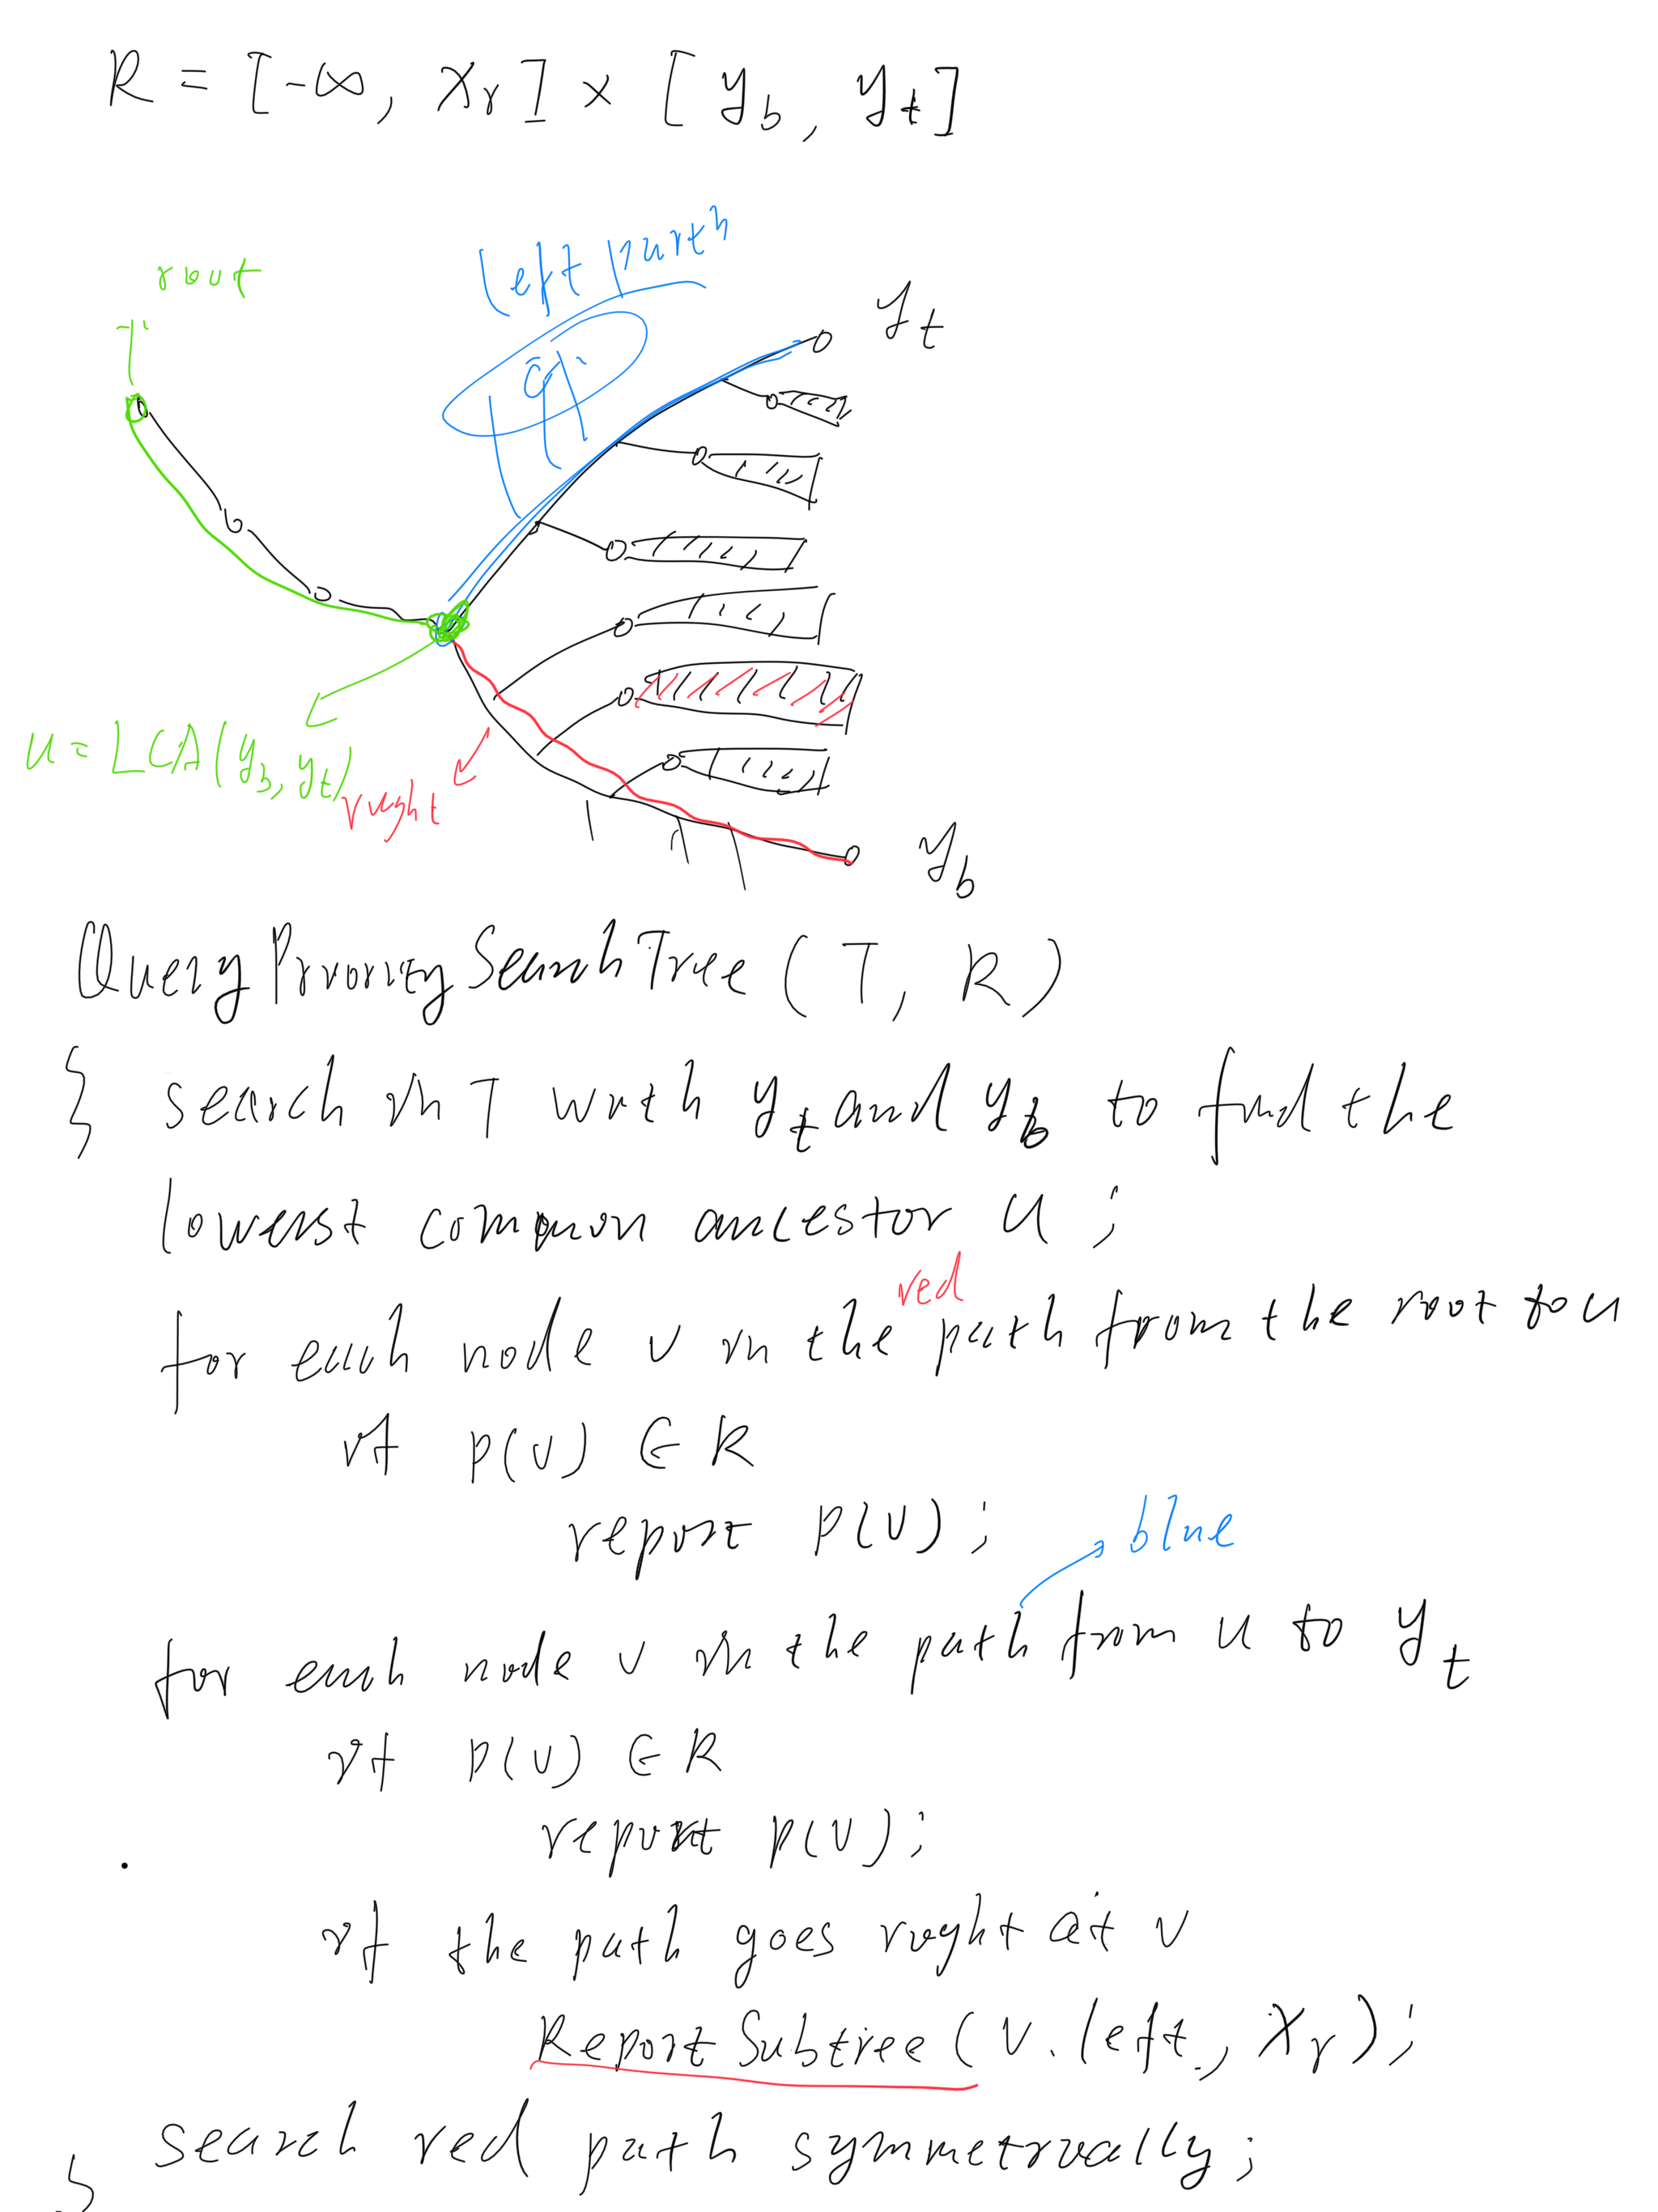 R = [-∞, x_r] × [y_b, y_t]
left path
root
y_t
u = LCA(y_b, y_t)
right
y_b
QueryPrioritySearchTree(T, R)
{ search in T with y_t and y_b to find the
lowerst common ancestor u;
red
for each node v in the path from the root to u
if p(v) ∈ R
report p(v);
blue
for each node v in the path from u to y_t
if p(v) ∈ R
report p(v);
if the path goes right at v
ReportSubtree(v.left, x_r);
search red path symmetrically;
}